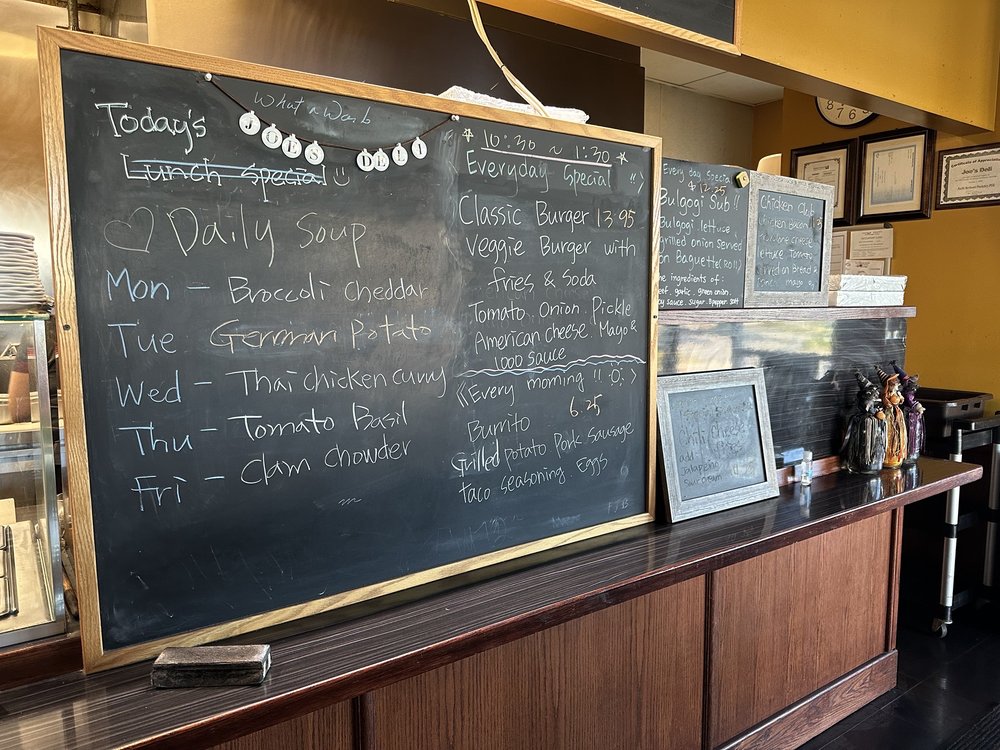 What a
Today's
JOE'S DELI
Lunch Special
Daily Soup
Mon - Broccoli cheddar
Tue German Potato
Wed - Thai chicken curry
Thu - Tomato Basil
Fri - Clam chowder
10:30 ~ 1:30
Everyday Special !!
Classic Burger 13.95
Veggie Burger with
fries & Soda
Tomato. Onion. Pickle
American cheese. Mayo &
1000 sauce
Every morning !!
6.25
Burrito
Grilled Potato Pork Sausage
taco seasoning Eggs
Every day Special
$ 12.25
Bulgogi Sub !!
Bulgogi lettuce
grilled onion served
on Baguette
The ingredients of:
garlic green onion
soy sauce. sugar. pepper
Chicken
Chicken Bacon
cheese
lettuce Tomato
on Bread
mayo
Chili cheese
add
Jalapeño
8 7 6
Certificate of Appreciation
Joe's Deli